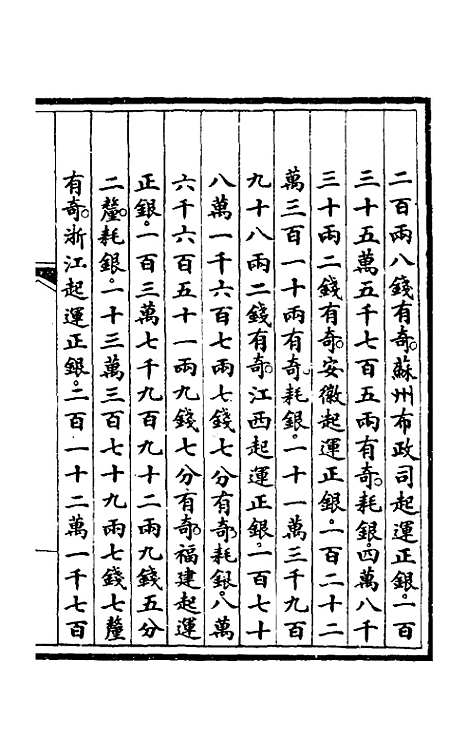 二百兩八錢有奇。蘇州布政司起運正銀。一百
三十五萬五千七百五兩有奇。耗銀。四萬八千
三十兩二錢有奇。安徽起運正銀。一百二十二
萬三百一十兩有奇。耗銀。一十一萬三千九百
九十八兩二錢有奇。江西起運正銀。一百七十
八萬一千六百七兩七錢七分有奇。耗銀。八萬
六千六百五十一兩九錢七分有奇。福建起運
正銀。一百三萬七千九百九十二兩九錢五分
二釐。耗銀。一十三萬三百七十九兩七錢七釐
有奇。浙江起運正銀。二百一十二萬一千七百